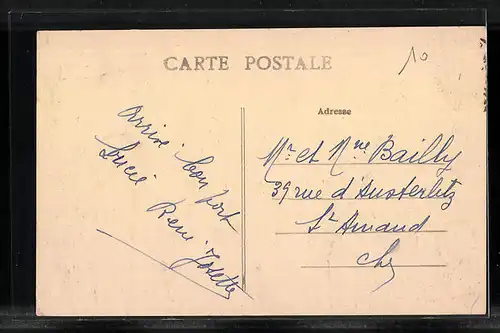 CARTE POSTALE
10
Adresse
Arrivé bon port
Lucie René Josette
Mr et Mme Bailly
39 rue d'Austerlitz
St Amand
Cher